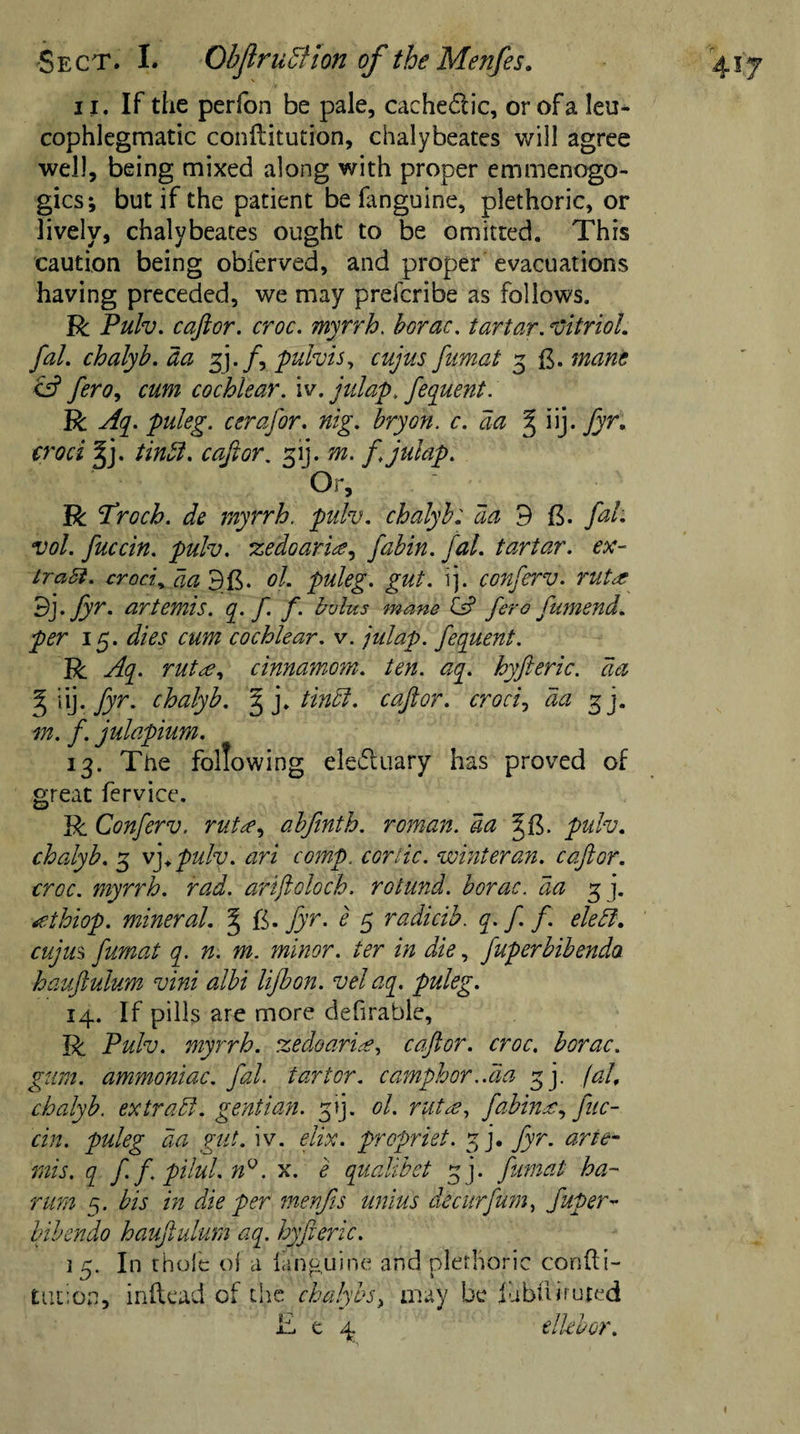 Sect. I. Obſtruction of the Menſes. 417
11. If the perſon be pale, cachectic, or of a leu-
cophlegmatic conſtitution, chalybeates will agree
well, being mixed along with proper emmenogo-
gics; but if the patient be ſanguine, plethoric, or
lively, chalybeates ought to be omitted. This
caution being obſerved, and proper evacuations
having preceded, we may preſcribe as follows.
℞ Pulv. caſtor. croc. myrrh. borac. tartar. vitriol.
ſal. chalyb. āa ʒj. f, pulvis, cujus ſumat ʒ ß. mane
& ſero, cum cochlear. iv. julap. ſequent.
℞ Aq. puleg. ceraſor. nig. bryon. c. āa ℥ iij. ſyr.
croci ℥j. tinct. caſtor. ʒij. m. f. julap.
Or,
℞ Troch. de myrrh. pulv. chalyb. āa ℈ ß. ſal.
vol. ſuccin. pulv. zedoariæ, ſabin. ſal. tartar. ex-
tract. croci, āa ℈ß. ol. puleg. gut. ij. conſerv. rutæ
℈j. ſyr. artemis. q. ſ. f. bolus mane & ſero ſumend.
per 15. dies cum cochlear. v. julap. ſequent.
℞ Aq. rutæ, cinnamom. ten. aq. hyſteric. āa
℥ iij. ſyr. chalyb. ℥ j. tinct. caſtor. croci, āa ʒ j.
m. f. julapium.
13. The following electuary has proved of
great ſervice.
℞ Conſerv. rutæ, abſinth. roman. āa ℥ß. pulv.
chalyb. ʒ vj. pulv. ari comp. cortic. winteran. caſtor.
croc. myrrh. rad. ariſtoloch. rotund. borac. āa ʒ j.
æthiop. mineral. ℥ ß. ſyr. è 5 radicib. q. ſ. f. elect.
cujus ſumat q. n. m. minor. ter in die, ſuperbibendo
hauſtulum vini albi liſbon. vel aq. puleg.
14. If pills are more deſirable,
℞ Pulv. myrrh. zedoariæ, caſtor. croc. borac.
gum. ammoniac. ſal. tartor. camphor..āa ʒj. ſal.
chalyb. extract. gentian. ʒij. ol. rutæ, ſabinæ, ſuc-
cin. puleg āa gut. iv. elix. propriet. ʒj. ſyr. arte-
mis. q ſ. f. pilul. nº. x. è qualibet ʒj. ſumat ha-
rum 5. bis in die per menſis unius decurſum, ſuper-
bibendo hauſtulum aq. hyſteric.
15. In thoſe of a ſanguine and plethoric conſti-
tution, inſtead of the chalybs, may be ſubſtituted
E e 4 ellebor.